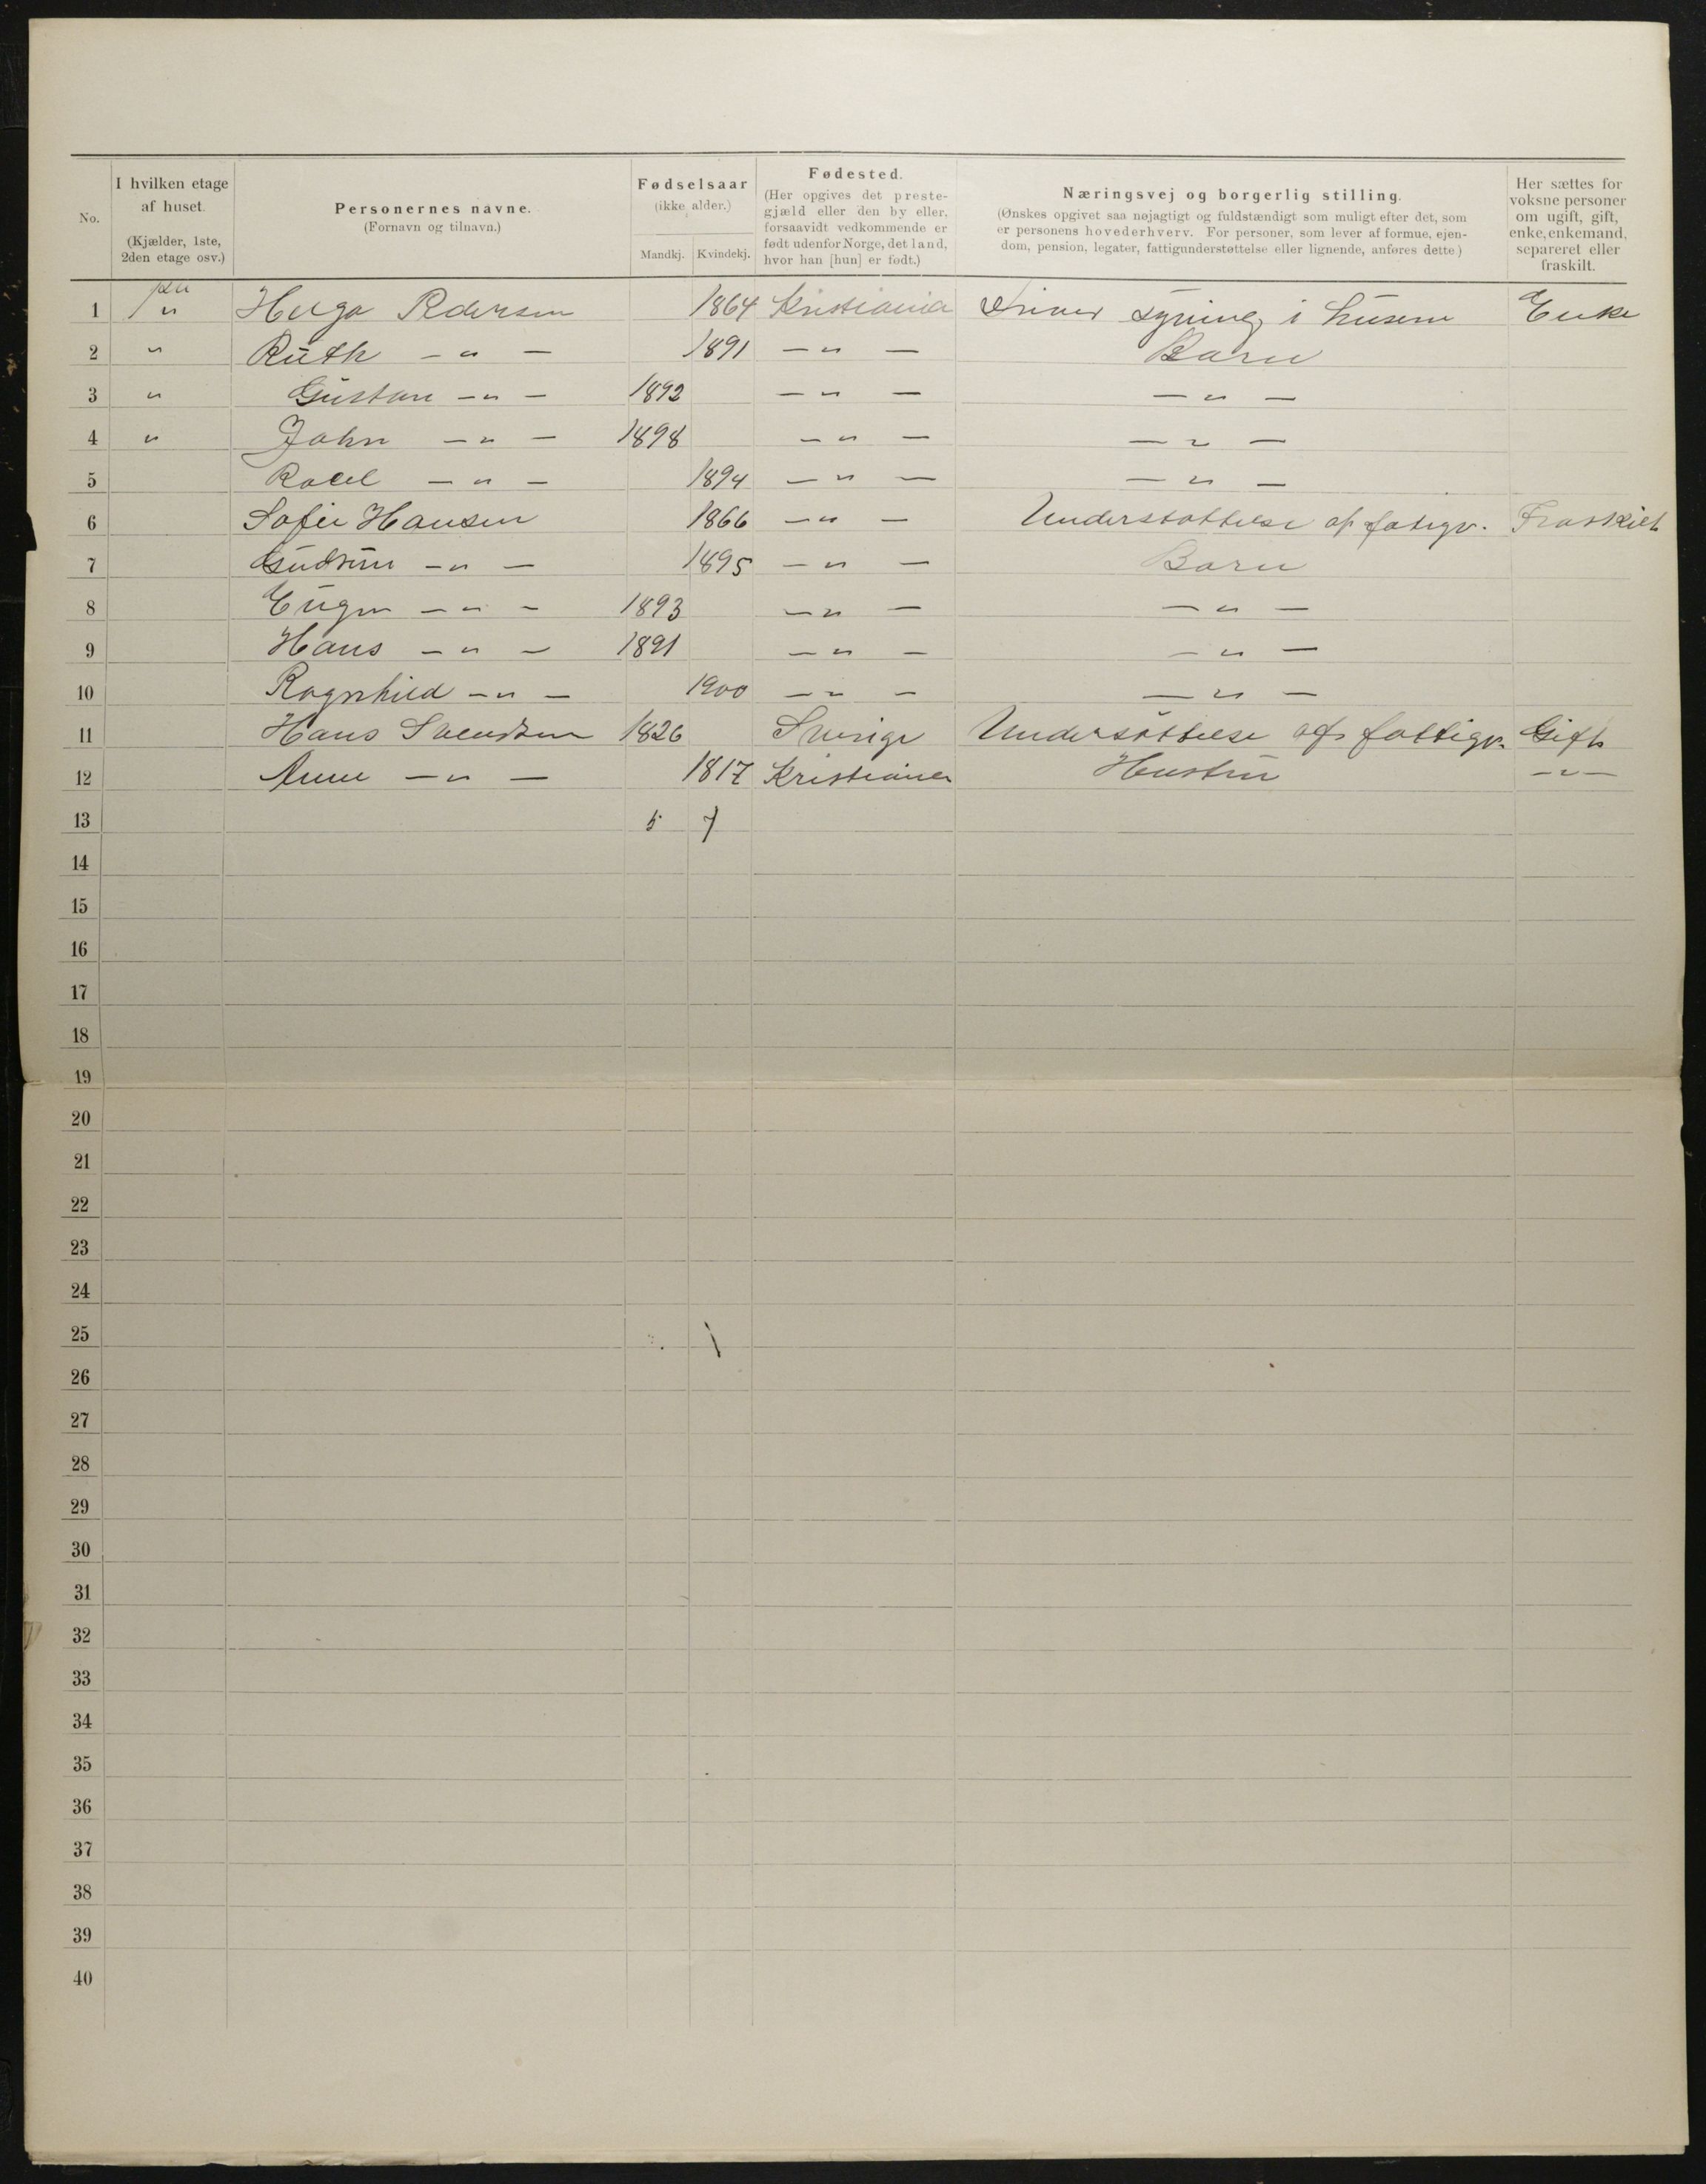 No.
I hvilken etage af huset. (Kjælder, 1ste, 2den etage osv.)
Personernes navne. (Fornavn og tilnavn.)
Fødselsaar (ikke alder.) Mandkj. Kvindekj.
Fødested. (Her opgives det prestegjæld eller den by eller, forsaavidt vedkommende er født udenfor Norge, det land, hvor han [hun] er født.)
Næringsvej og borgerlig stilling. (Ønskes opgivet saa nøjagtigt og fuldstændigt som muligt efter det, som er personens hovederhverv. For personer, som lever af formue, ejendom, pension, legater, fattigunderstøttelse eller lignende, anføres dette)
Her sættes for voksne personer om ugift, gift, enke, enkemand, separeret eller fraskilt.
1 Helga Pedersen 1864 Kristiania Driver syning i husene Enke
2 " Ruth — " — 1891 — " — Barn
3 " Gustav — " — 1892 — " — — " —
4 " John — " — 1898 — " — — " —
5 — " — 1894 — " — — " —
6 Sofie Hansen 1866 — " — Understøttelse af fatigv. Fraskilt
7 Gudrun — " — 1895 — " — Barn
8 Eugen — " — 1893 — " — — " —
9 Hans — " — 1891 — " — — " —
10 Ragnhild — " — 1900 — " — — " —
11 Hans Svendsen 1826 Sverige Undersøttelse af fattigv. Gift
12 Anne — " — 1817 Kristiania Hustru — " —
13 5 7
14
15
16
17
18
19
20
21
22
23
24
25
26
27
28
29
30
31
32
33
34
35
36
37
38
39
40